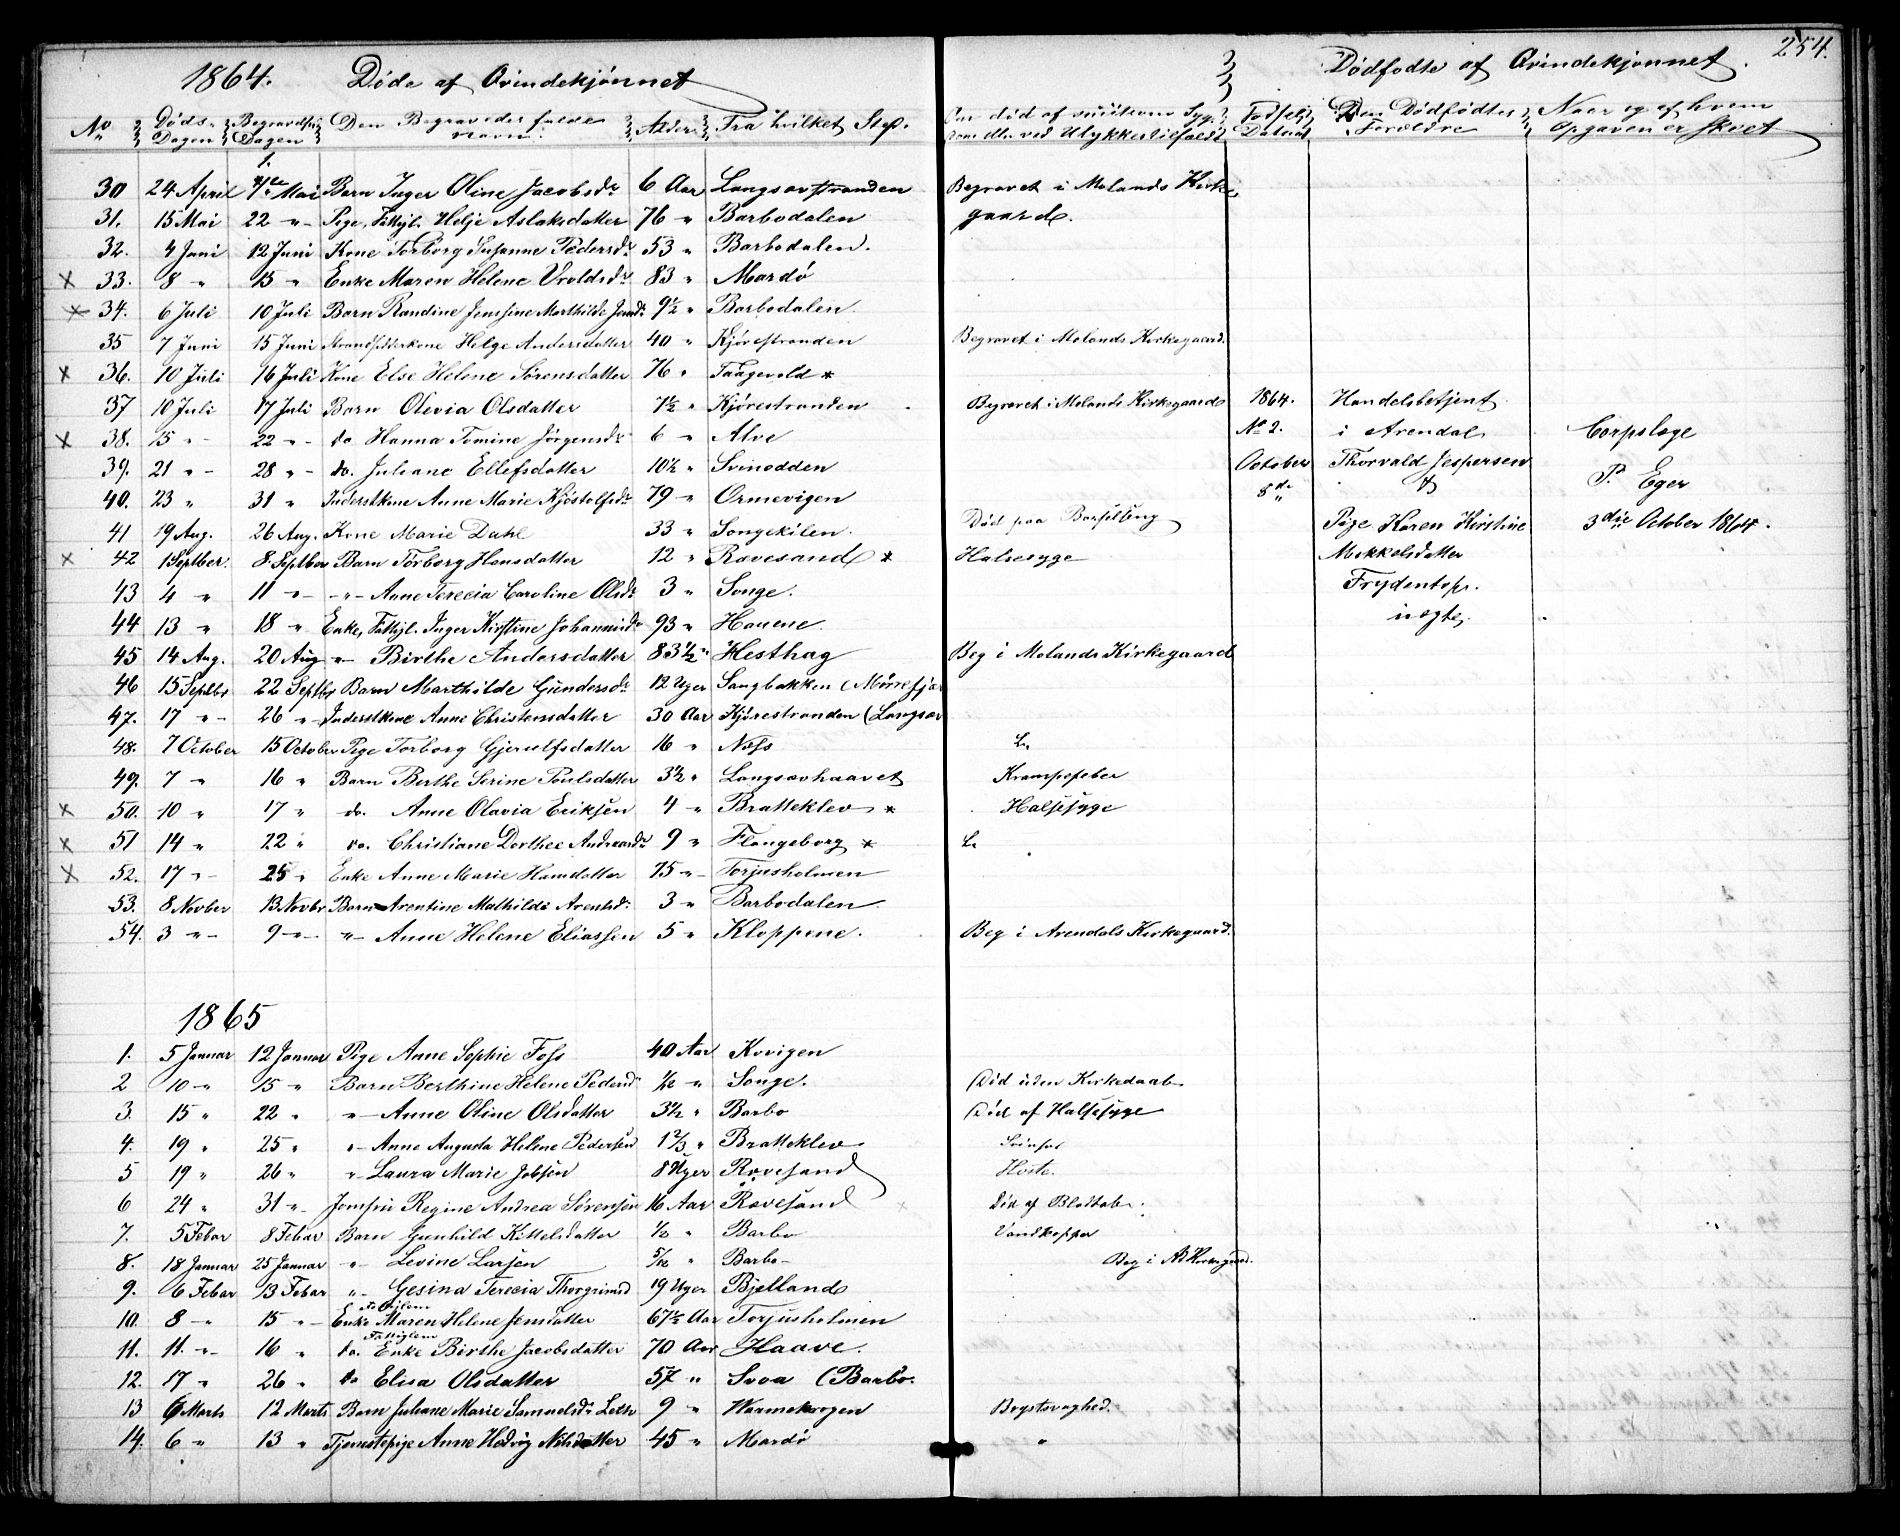 254.
1864. Døde af Qvindekjønnet
Dødfødte af Qvindekjønnet.
No Døds- Dagen Begravelses Dagen Den Begravedes fulde Navn. Alder. Fra hvilket Sted.
Om død af Syg- eller ved Ulykkestilfælde Fødsels Datum Den Dødfødtes Forældre Naar og af hvem Opgaven er skeet
30 24 April 1ste Mai Barn Inger Oline Jacobsdr 6 Aar Langsævstranden Begravet i Molands Kirke-
31. 15 Mai 22 " - Pige, Fattigl. Helje Aslaksdatter 76 " Barbodalen gaard.
32. 4 Juni 12 Juni Kone Torborg Susanne Pedersdr 53 " Barbodalen.
x 33. 8 " 15 " Enke Maren Helene Uroldsdr 83 " Mardö
x 34. 6 Juli 10 Juli Barn Randine Jensine Marthilde Jensdr 9½ " Barbodalen.
35 7 Juni 15 Juni Helge Andersdatter 40 " Kjørestranden Begravet i Molands Kirkegaard.
x 36. 10 Juli 16 Juli Kone Else Helene Sörensdatter 76 " Taagevold *
37 10 Juli 17 Juli Barn Olevia Olsdatter 1½ " Kjørestranden Begravet i Molands Kirkegaard 1864. Handelsbetjent
x 38. 15 " - 22 " - do Hanna Tomine Jörgensdr 6 " Alve No 2. i Arendal Corpslæge
39. 21 " - 28 " - do. Juliane Ellefsdatter 10½ " Svinodden October Thorvald Jespersen P. Eger
40. 23 " 31 " Inderstkone Anne Marie Kjöstolfsdr 79 " Ormevigen 8de &
41 19 Aug. 26 Aug. Kone Marie Dahl 33 " Songekilen. Død paa Barselseng Pige Karen Kirstine 3die October 1864.
x 42 1 Septber. 8 Septber Barn Törborg Hansdatter 12 " Rævesand * Halsesyge Mikkelsdatter
43 4 " 11 " - " - Anne Terecia Caroline Olsdr 3 " Songe. Frydentop.
44 13 " 18 " Enke, Fattigl. Inger Kirstine Johannesdr 93 " Hauene. uægte.
45 14 Aug. 20 Aug " - Birthe Andersdatter 83½ " Hesthag Beg i Molands Kirkegaard
46 15 Septbr 22 Septbr Barn Marthilde Gundersdr 12 Uger Sangbakken (Mörefjær
47. 17 " - 26 " - Inderstkone Anne Christensdatter 30 Aar Kjørestranden (Langsæv
48. 7 October 15 October Pige Torborg Gjerulfsdatter 16 " Næss
49. 7 " 16 " Barn Berthe Serine Poulsdatter 3½ " Langsævhaavet Krampefeber
x 50. 10 " 17 " do. Anne Olavia Eriksen 4 " Bratteklev * Halsesyge
x 51 14 " 22 " do. Christiane Dorthee 9 " Flangeborg *
x 52. 17 " - 25 " Enke Anne Marie Hansdatter 75 " - Torjusholmen
53. 8 Novber 13 Novbr Barn Arentine Mathilde Arentsdr 3 " Barbodalen.
54. 3 " - 9 " - " - Anne Helene Eliassen 5 " Kloppene. Beg i Arendals Kirkegaard.
1865
1. 5 Januar 12 Januar Pige Anne Sophie Foss 40 Aar Kvvigen
2 10 " 15 " Barn Berthine Helene Pedersdr 1/12 " Songe. Död uden Kirkedaab
3. 15 " 22 " " - Anne Oline Olsdatter 3½ " Barbo Död af Halsesyge
4. 19 " 25 " " - Anne Augusta Helene Pedersen 1 2/3 " Bratteklev
5 19 " 26 " " - Laura Marie Jobsen 8 Uger Rævesand Hoste.
6 24 " 31 " - Jomfru Regine Andrea Sörensen 16 Aar Rævesand Död af Blodtab.
7. 5 Febar 8 Febar Barn Gunhild Kittelsdatter ½ " Barbo Vandkopper
8. 18 Januar 25 Januar " Levine Larsen 5/12 " Barbo - Beg i Kirkegaard.
9. 6 Febar 13 Febar " - Gesina Terecia Thorgrimsd 19 Uger Bjelland
10. 8 " 15 " - Enke Fattiglem Maren Helene Jensdatter 67½ Aar Torjusholmen
11. 11. " - 16 " do. Fattiglem Enke Birthe Jacobsdatter 70 Aar Haave.
12. 17 " 26 " do Elisa Olsdatter 57 " Svoa (Barbo.
13 6 Marts 12 Marts Barn Juliane Marie Samuelsdr Leth 9 " Warmekrogen Brystsvaghed.
14. 6 " 13 " Tjenestepige Anne Hedvig Nilsdatter 45 " Mardö "